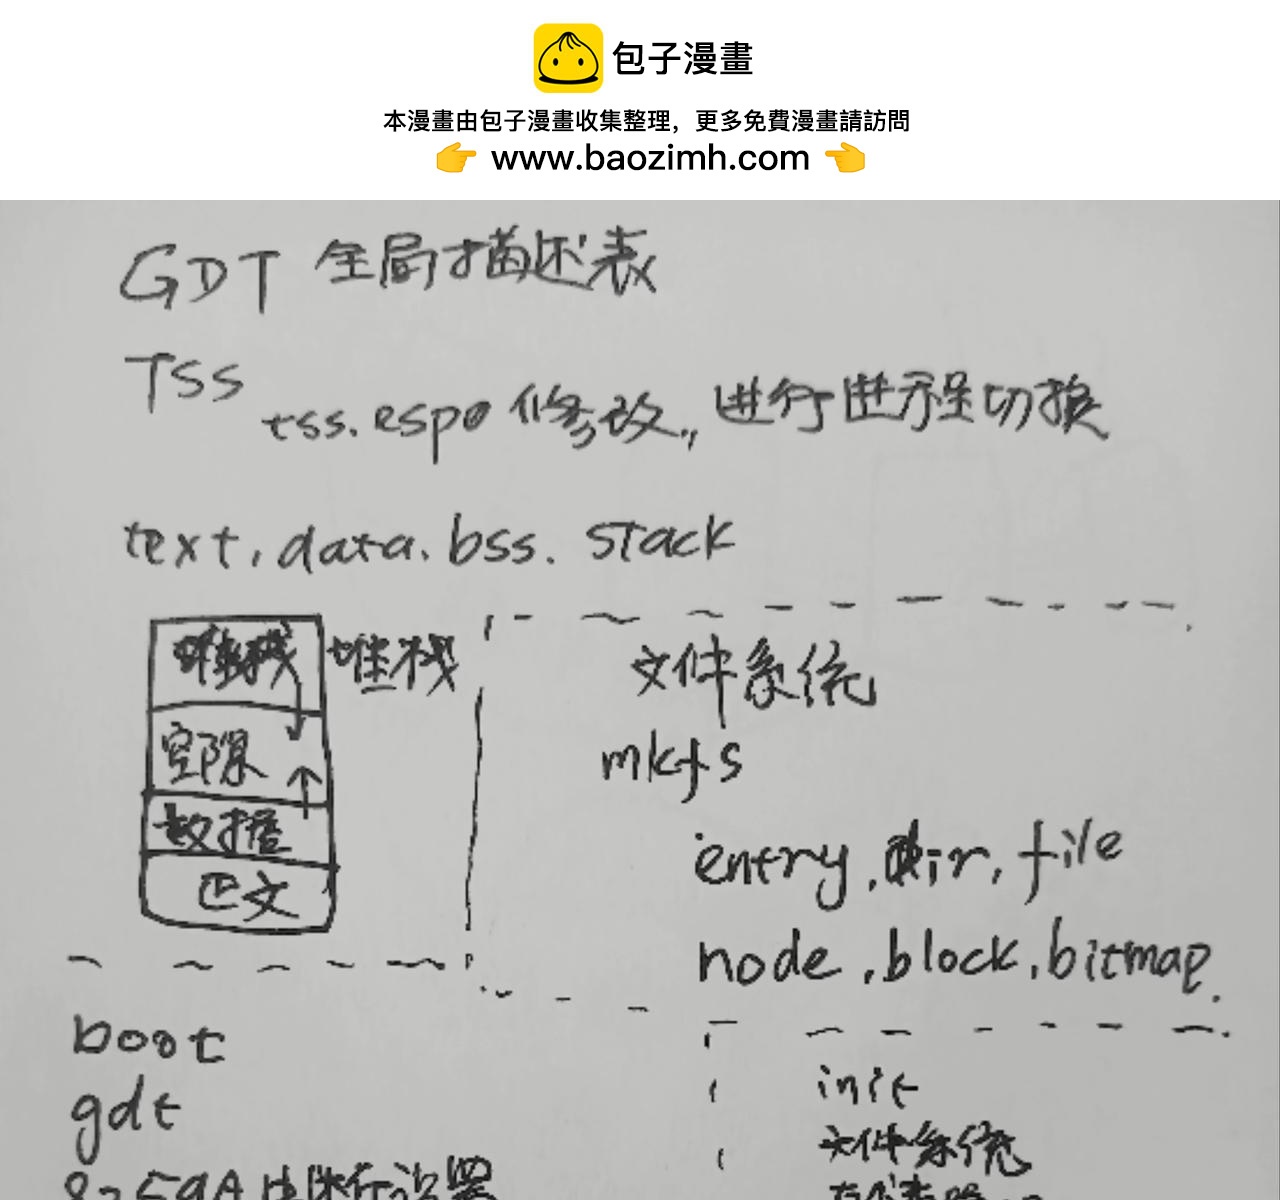 包子漫畫
本漫畫由包子漫畫收集整理，更多免費漫畫請訪問
👉 www.baozimh.com 👈
GDT 全局描述表
TSS
tss.esp0 修改., 进行进程切换
text, data. bss. stack
堆栈 堆栈
空隙
数据
正文
文件系统
mkfs
entry, dir, file
node, block, bitmap.
boot
gdt
8259A
init
文件系统